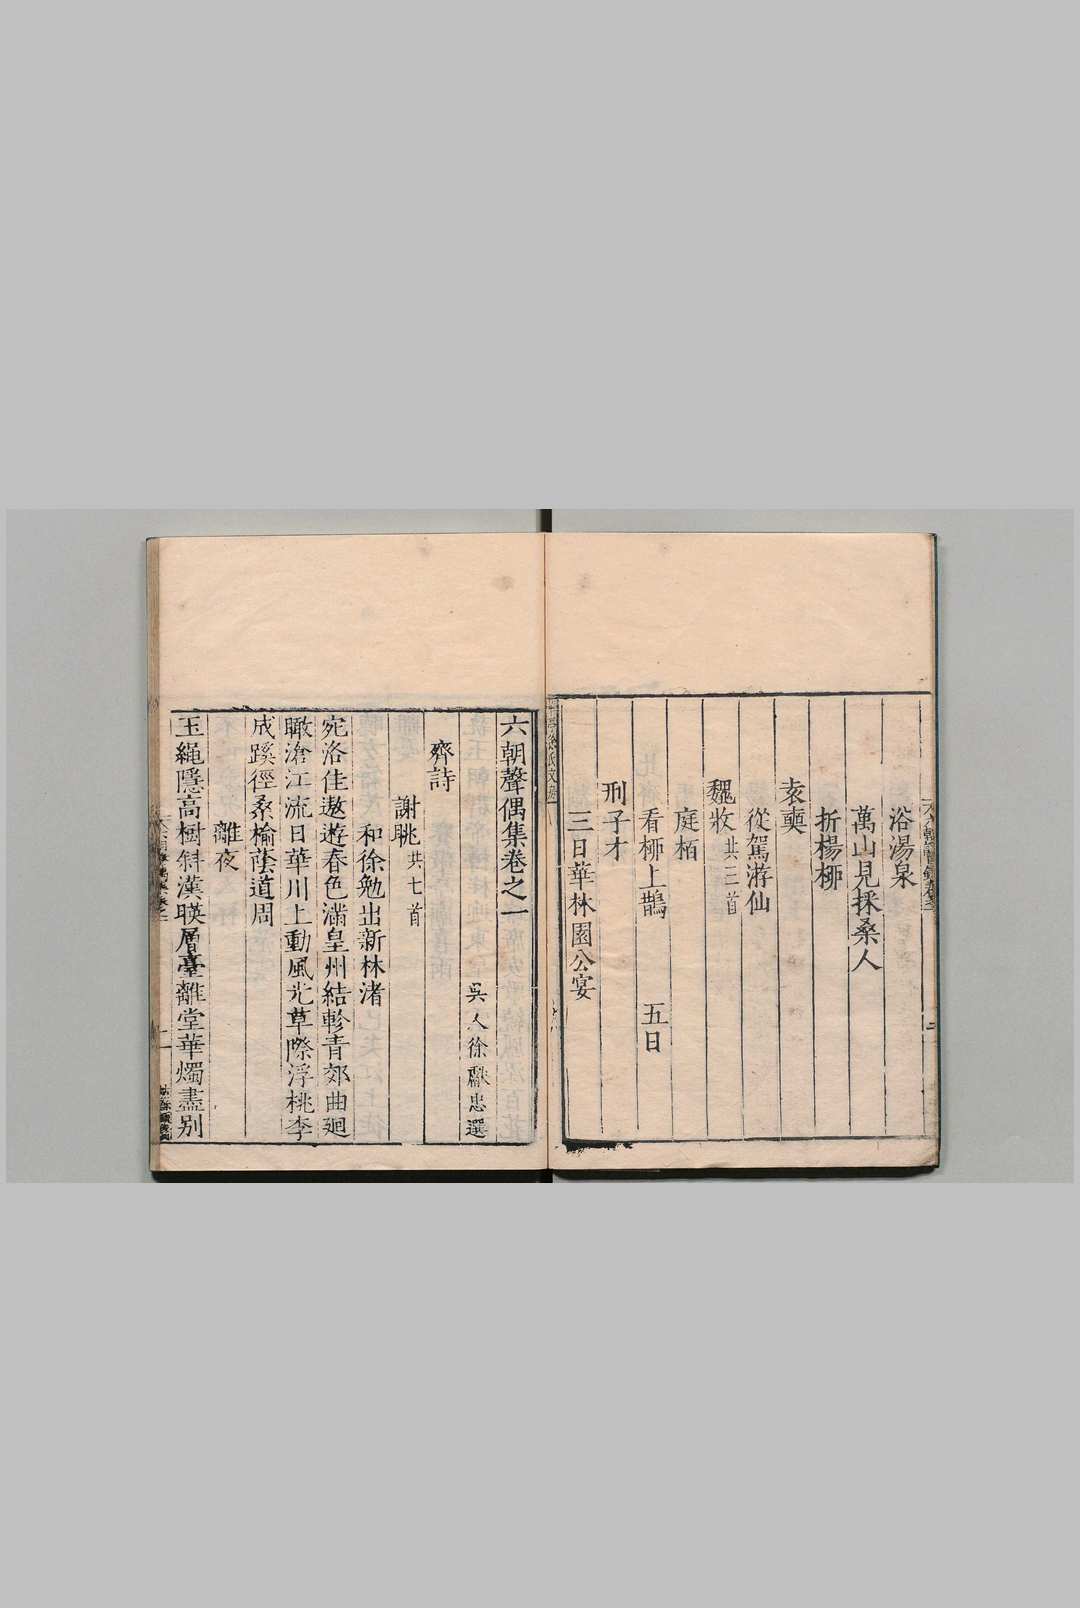 浴湯泉
萬山見採桑人
折楊柳
袁奭
從駕游仙
魏收共三首
庭栢
看柳上鵲　五日
刑子才
三日華林園公宴
六朝聲偶集卷之一
吳人徐獻忠選
齊詩
謝朓共七首
和徐勉出新林渚
宛洛佳遨遊春色滿皇州結軫青郊曲廻
瞰滄江流日華川上動風光草際浮桃李
成蹊徑桑榆蔭道周
離夜
玉繩隱高樹斜漢暎層臺離堂華燭盡别